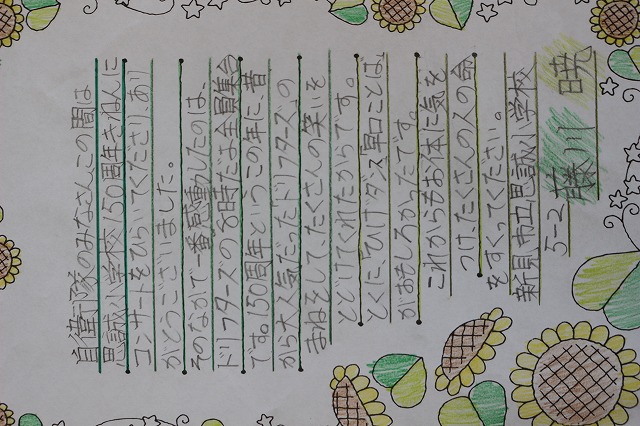 自衛隊のみなさん、この間は
思誠小学校150周年きねんに
コンサートをひらいてくださり、あり
がとうございました。
そのなかで一番感動したのは、
ドリフターズの8時だよ全員集合
です。150周年というこの年に、昔
から大人気だった「ドリフターズ」の
まねをしてたくさんの笑いを
とどけてくれたからです。
とくに、ひげダンス「早口ことば」
がおもしろかったです。
これからもお体に気を
つけ、たくさんの人の命
をすくってください。
新見市立思誠小学校
5-2 藤川 暁